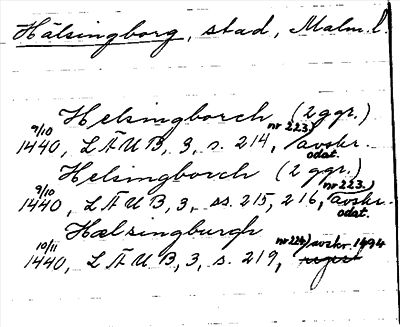 Hälsingborg, stad, Malm. l.
Helsingborch (2 ggr.)
9/10 1440, LÄUB, 3, s. 214, nr 223) avskr. odat.
Helsingborch (2 ggr.)
9/10 1440, LÄUB, 3, ss. 215, 216, nr 223) avskr. odat.
Hælsinghburgh
10/11 1440, LÄUB, 3, s. 219, nr 224) avskr. 1494